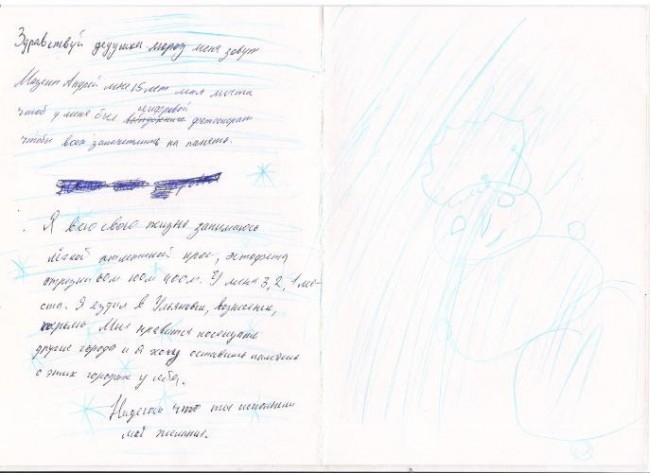 Здравствуй дедушка мороз меня зовут
Андрей мне 15 лет моя мечта
чтоб у меня был цифровой фотоапарат
чтобы всех запечетлить на память.
Я всю свою жизнь занимаюсь
лёгкой атлетикой крос, эстафета
отрезки 60м 100м 400м. У меня 3, 2, 1 ме-
ста. Я ездил в Ульяновка, вознесенск,
Мне нравится посещать
другие города и я хочу оставить
о этих городах у себя.
Надеюсь что ты исполниш
моё желание.